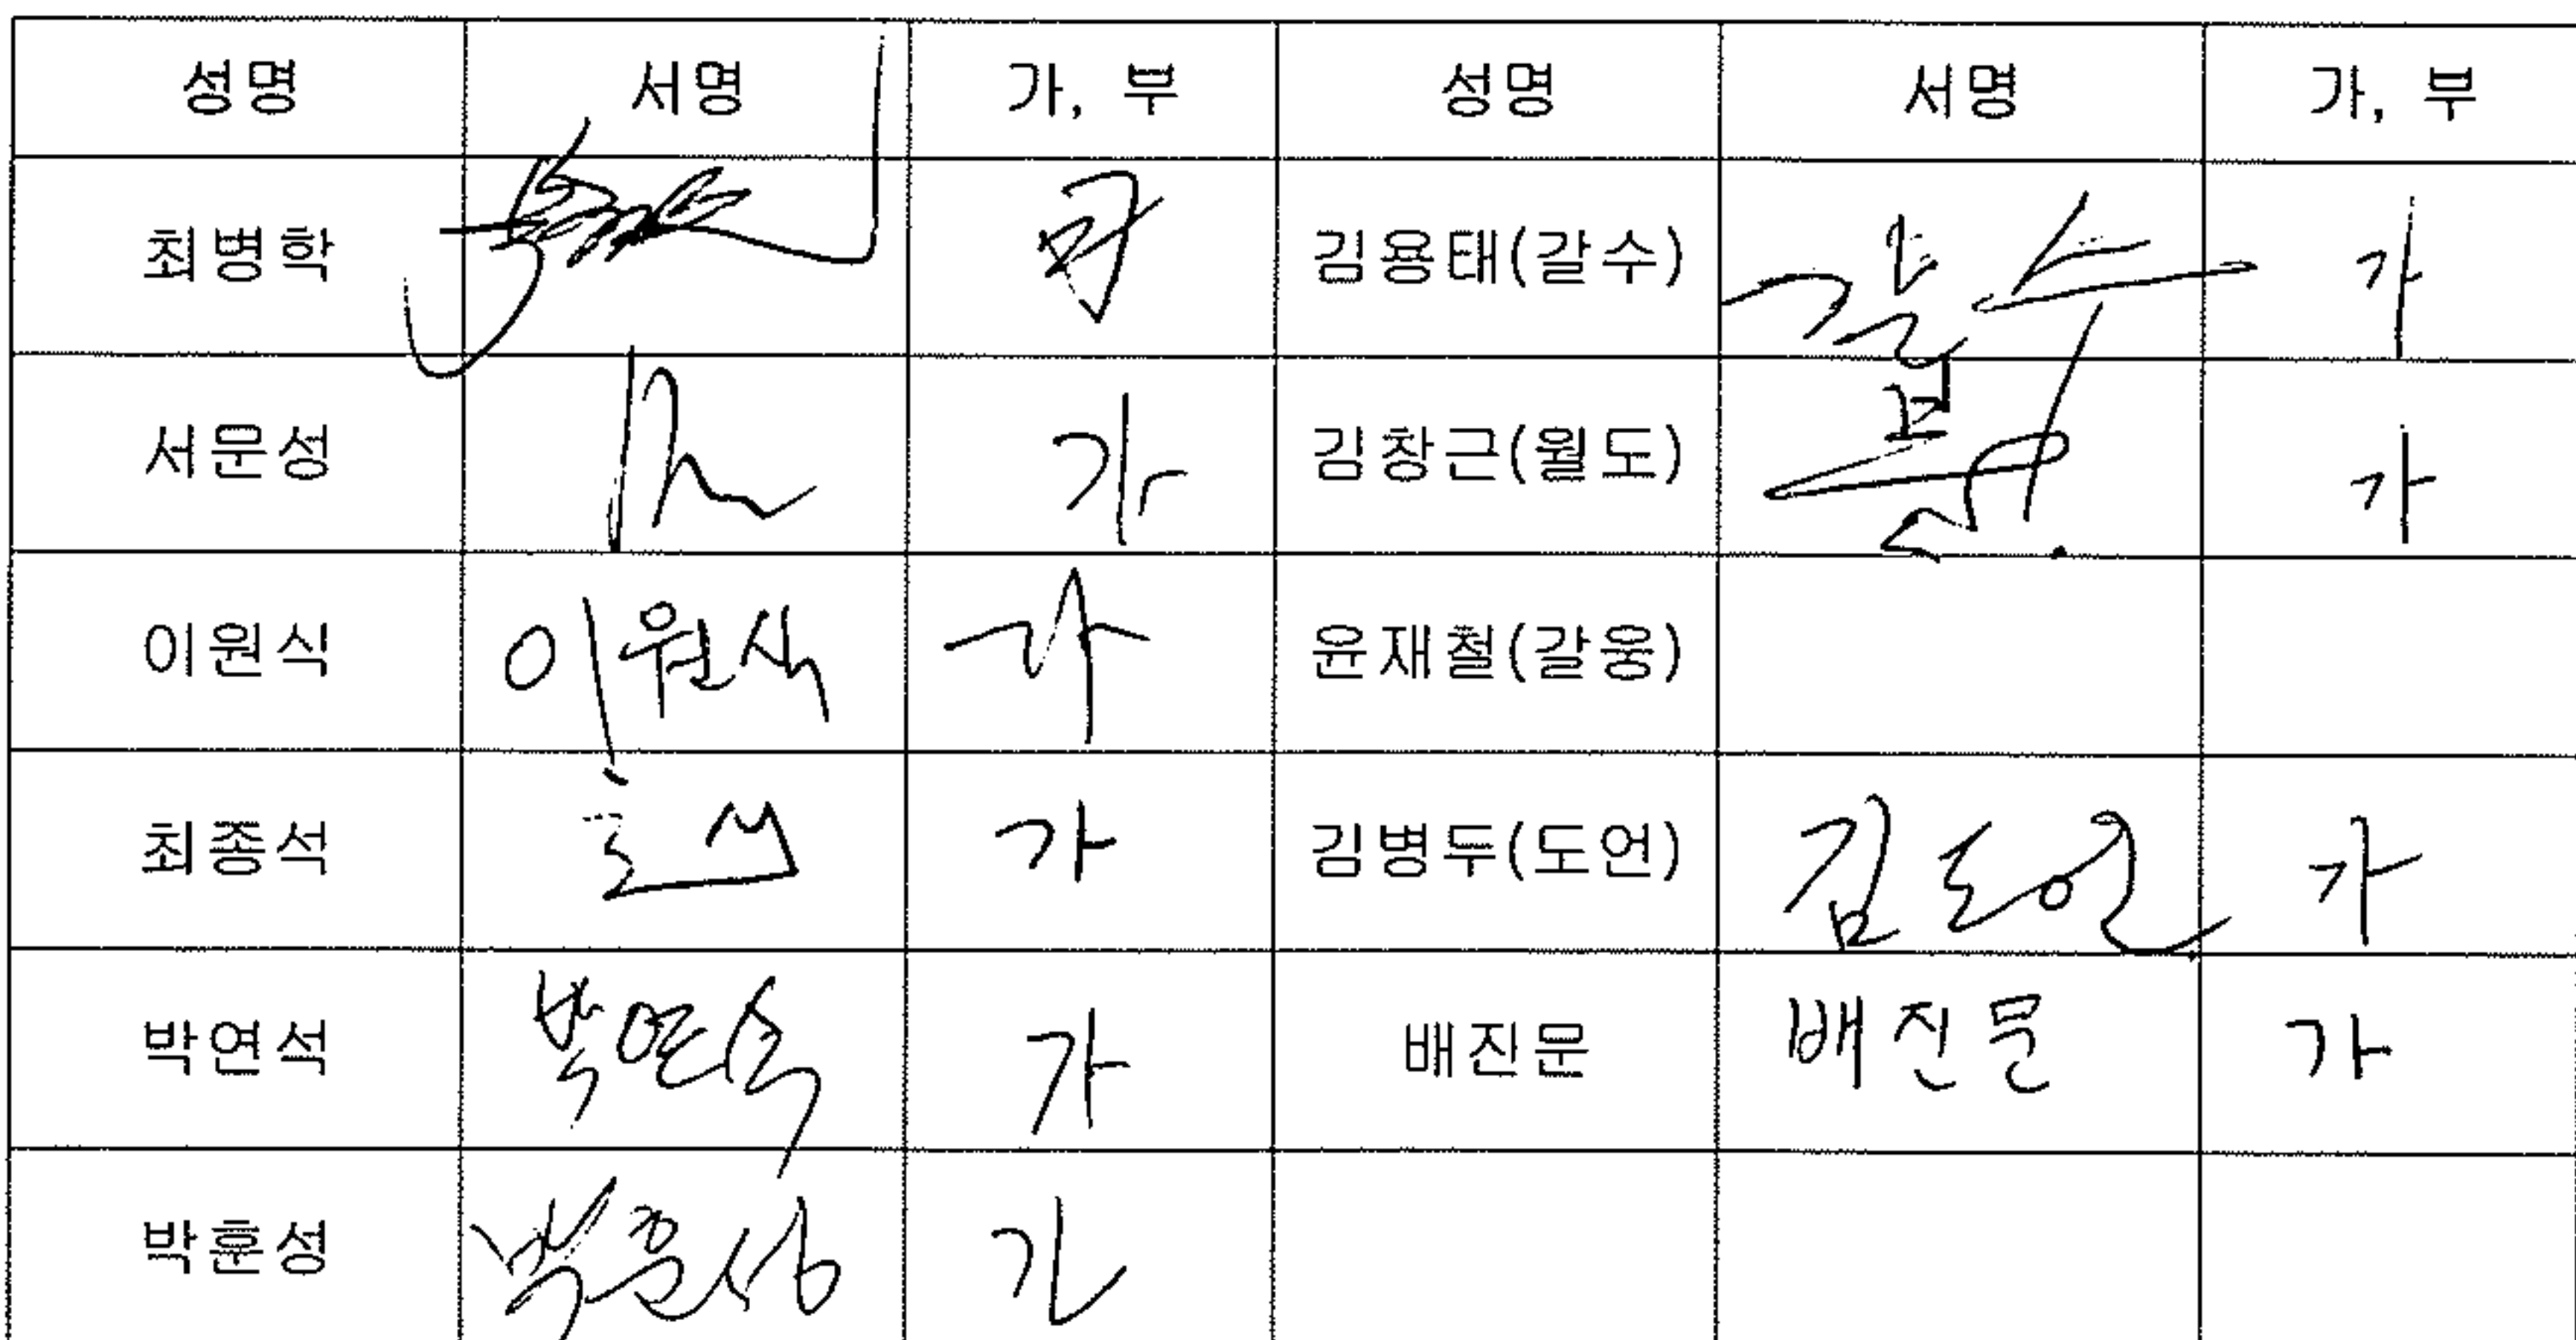 성명 서명 가, 부 성명 서명 가, 부
최병학 김용태(갈수) 갈수 가
서문성 가 김창근(월도) 가
이원식 이원식 가 윤재철(갈웅)
최종석 가 김병두(도언) 김도언 가
박연석 박연석 가 배진문 배진문 가
박훈성 박훈성 가